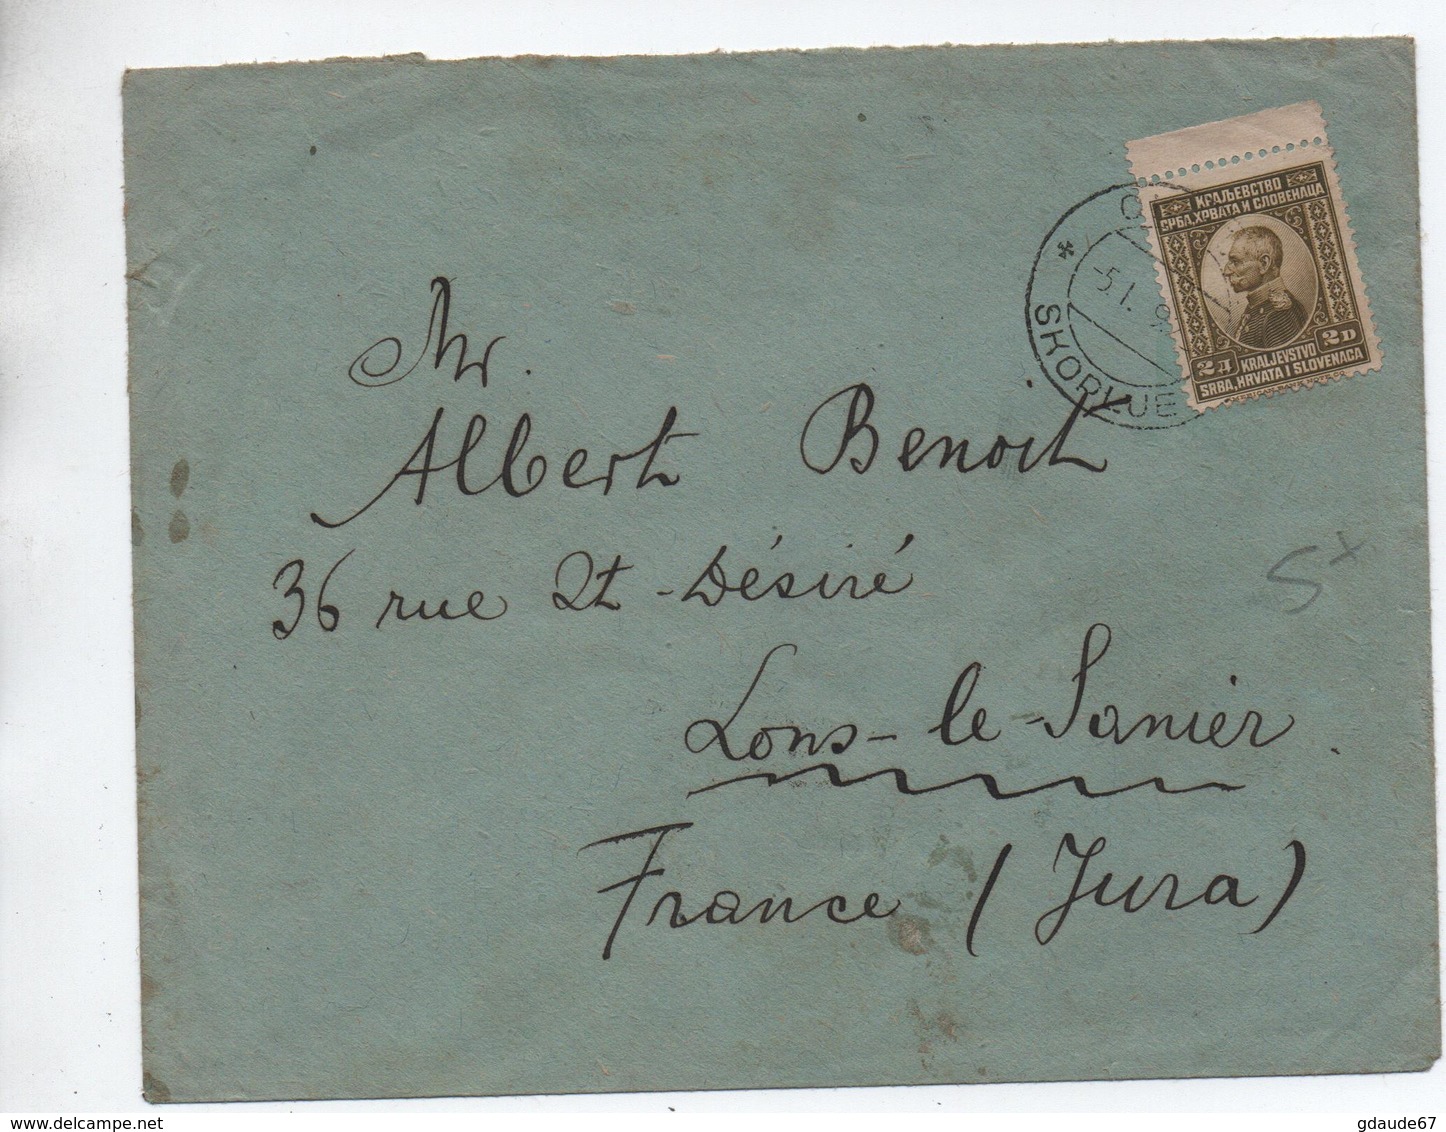 КРАЉЕВСТВО
СРБА, ХРВАТА И СЛОВЕНАЦА
2 Д
2 D
KRALJEVSTVO
SRBA, HRVATA I SLOVENACA
5.I.
Mr.
Albert Benoit
36 rue St-Désiré
Lons-le-Sanier.
France (Jura)
delcampe.net
gdaude67